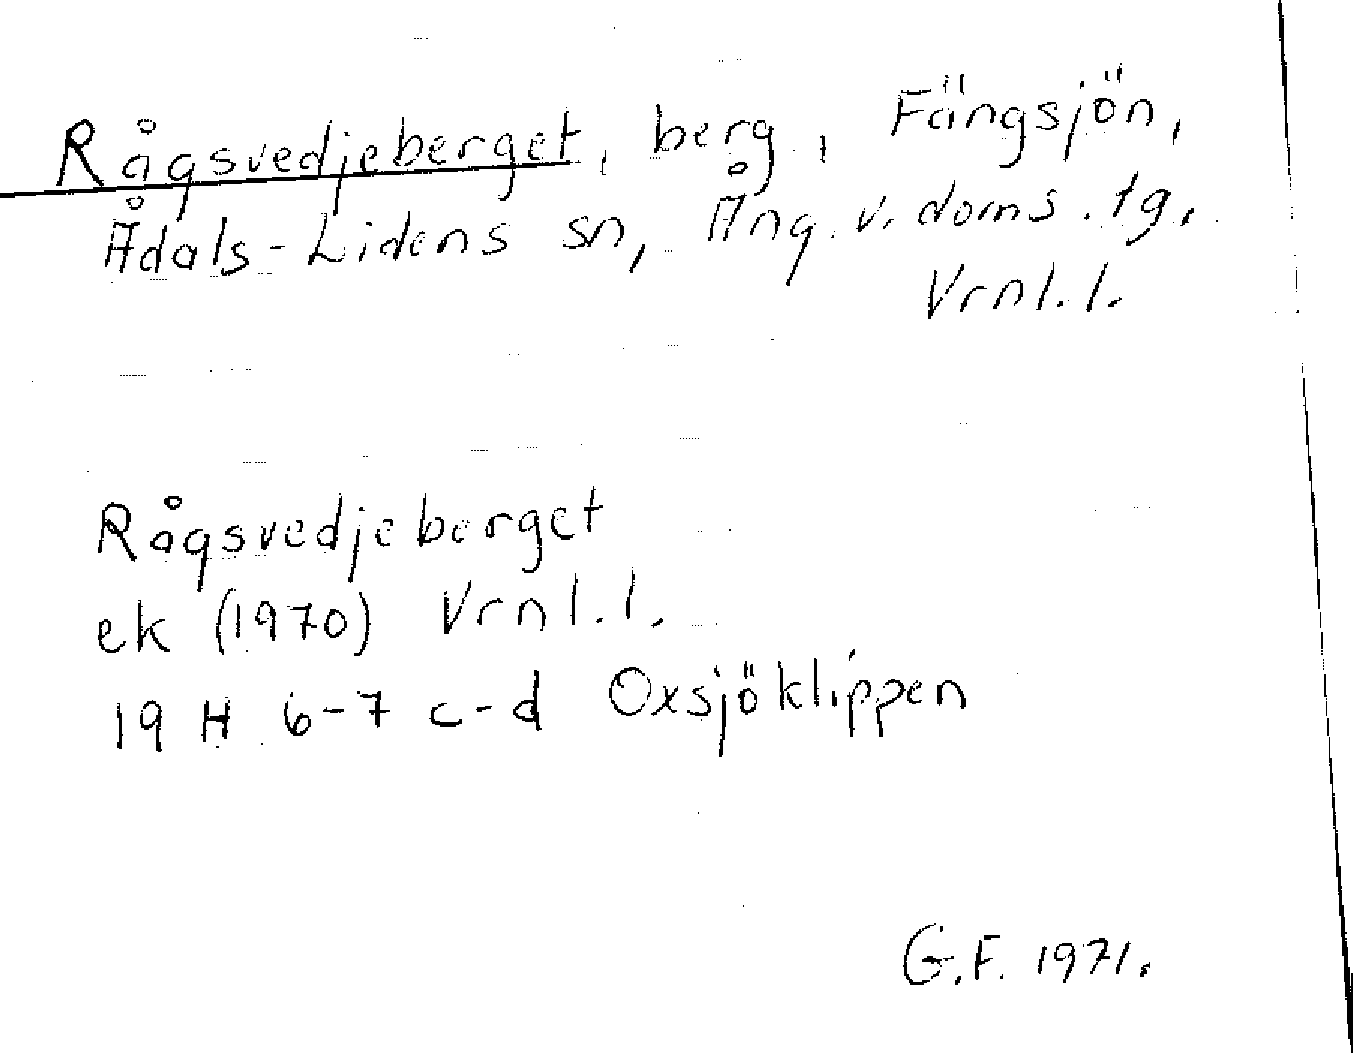 Rågsvedjeberget, berg, Fängsjön,
Ådals-Lidens sn, Ång. v. doms. tg.
Vrnl. l.
Rågsvedjeberget
ek (1970) Vrnl. l.
19 H 6-7 c-d Oxsjöklippen
G.F. 1971.